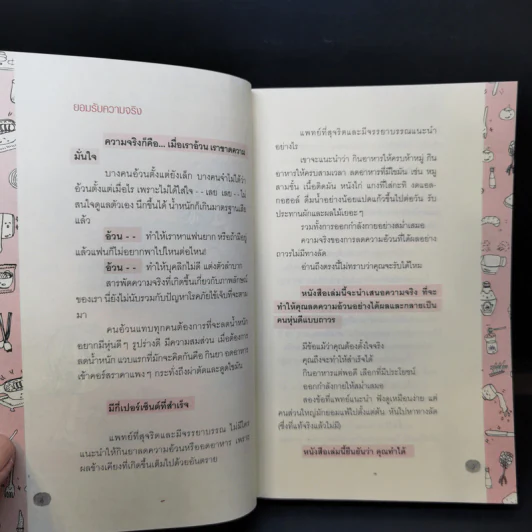 ยอมรับความจริง
ความจริงก็คือ... เมื่อเราอ้วน เราขาดความ
มั่นใจ
บางคนอ้วนตั้งแต่ยังเล็ก บางคนจำไม่ได้ว่า
อ้วนตั้งแต่เมื่อไร เพราะไม่ได้ใส่ใจ - - เลย เลย - - ไม่
สนใจดูแลตัวเอง นึกขึ้นได้ น้ำหนักก็เกินมาตรฐานเสีย
แล้ว
อ้วน - - ทำให้เราหาแฟนยาก หรือถ้ามีอยู่
แล้วแฟนก็ไม่อยากพาไปไหนต่อไหน!
อ้วน - - ทำให้บุคลิกไม่ดี แต่งตัวลำบาก
สารพัดความจริงที่เกิดขึ้นเกี่ยวกับภาพลักษณ์
ของเรา นี่ยังไม่นับรวมกับปัญหาโรคภัยไข้เจ็บที่จะตาม
มา
คนอ้วนแทบทุกคนต้องการที่จะลดน้ำหนัก
อยากมีหุ่นดีๆ รูปร่างดี มีความสมส่วน เมื่อต้องการ
ลดน้ำหนัก แวบแรกที่มักจะคิดกันคือ กินยา อดอาหาร
เข้าคอร์สราคาแพงๆ กระทั่งถึงผ่าตัดและดูดไขมัน
มีกี่เปอร์เซ็นต์ที่สำเร็จ
แพทย์ที่สุจริตและมีจรรยาบรรณ ไม่มีใคร
แนะนำให้กินยาลดความอ้วนหรืออดอาหาร เพราะ
ผลข้างเคียงที่เกิดขึ้นเต็มไปด้วยอันตราย
6
แพทย์ที่สุจริตและมีจรรยาบรรณแนะนำ
อย่างไร
เขาจะแนะนำว่า กินอาหารให้ครบห้าหมู่ กิน
อาหารให้ครบสามเวลา ลดอาหารที่มีไขมัน เช่น หมู
สามชั้น เนื้อติดมัน หนังไก่ แกงที่ใส่กะทิ งดแอล-
กอฮอล์ ดื่มน้ำอย่างน้อยแปดแก้วขึ้นไปต่อวัน รับ
ประทานผักและผลไม้เยอะๆ
รวมทั้งการออกกำลังกายอย่างสม่ำเสมอ
ความจริงของการลดความอ้วนที่ได้ผลอย่าง
ถาวรไม่มีทางลัด
อ่านถึงตรงนี้ไม่ทราบว่าคุณจะรับได้ไหม
หนังสือเล่มนี้จะนำเสนอความจริง ที่จะ
ทำให้คุณลดความอ้วนอย่างได้ผลและกลายเป็น
คนหุ่นดีแบบถาวร
มีข้อแม้ว่าคุณต้องตั้งใจจริง
คุณถึงจะทำให้สำเร็จได้
กินอาหารแต่พอดี เลือกที่มีประโยชน์
ออกกำลังกายให้สม่ำเสมอ
สองข้อที่แพทย์แนะนำ ฟังดูเหมือนง่าย แต่
คนส่วนใหญ่มักยอมแพ้ไปตั้งแต่ต้น หันไปหาทางลัด
(ซึ่งที่แท้จริงแล้วไม่มี)
หนังสือเล่มนี้ยืนยันว่า คุณทำได้
7